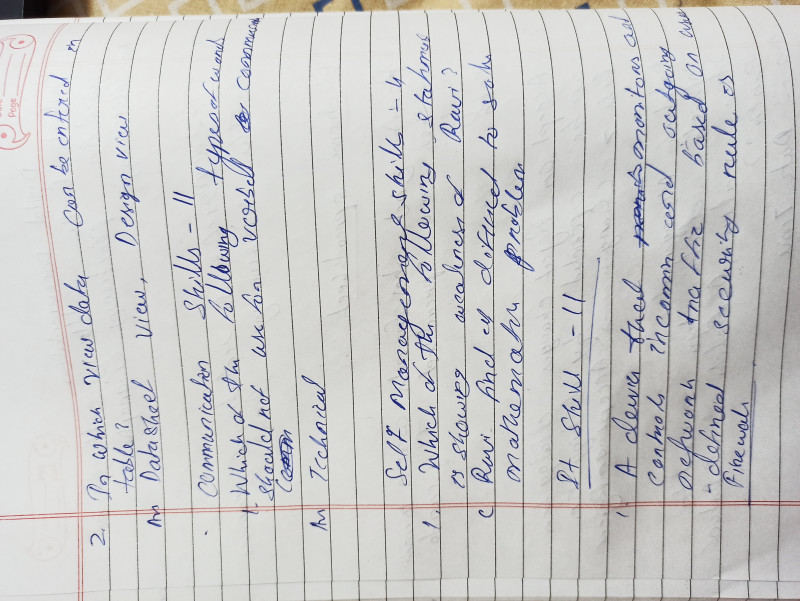 Page
2. In which view data can be entered in
table?
Ans Datasheet View, Design view
. Communication Skills - II
1. Which of the following types of words
should not use for verbal communic
Ans Technical
Self Management skills - 4
1. Which of the following statements
is showing weakness of Ravi?
C Ravi find it difficult to solve
mathematic problem
It Skill - II
1. A device that monitors and
controls incoming and outgoing
network traffic based on user
- defined security rule is
Firewall